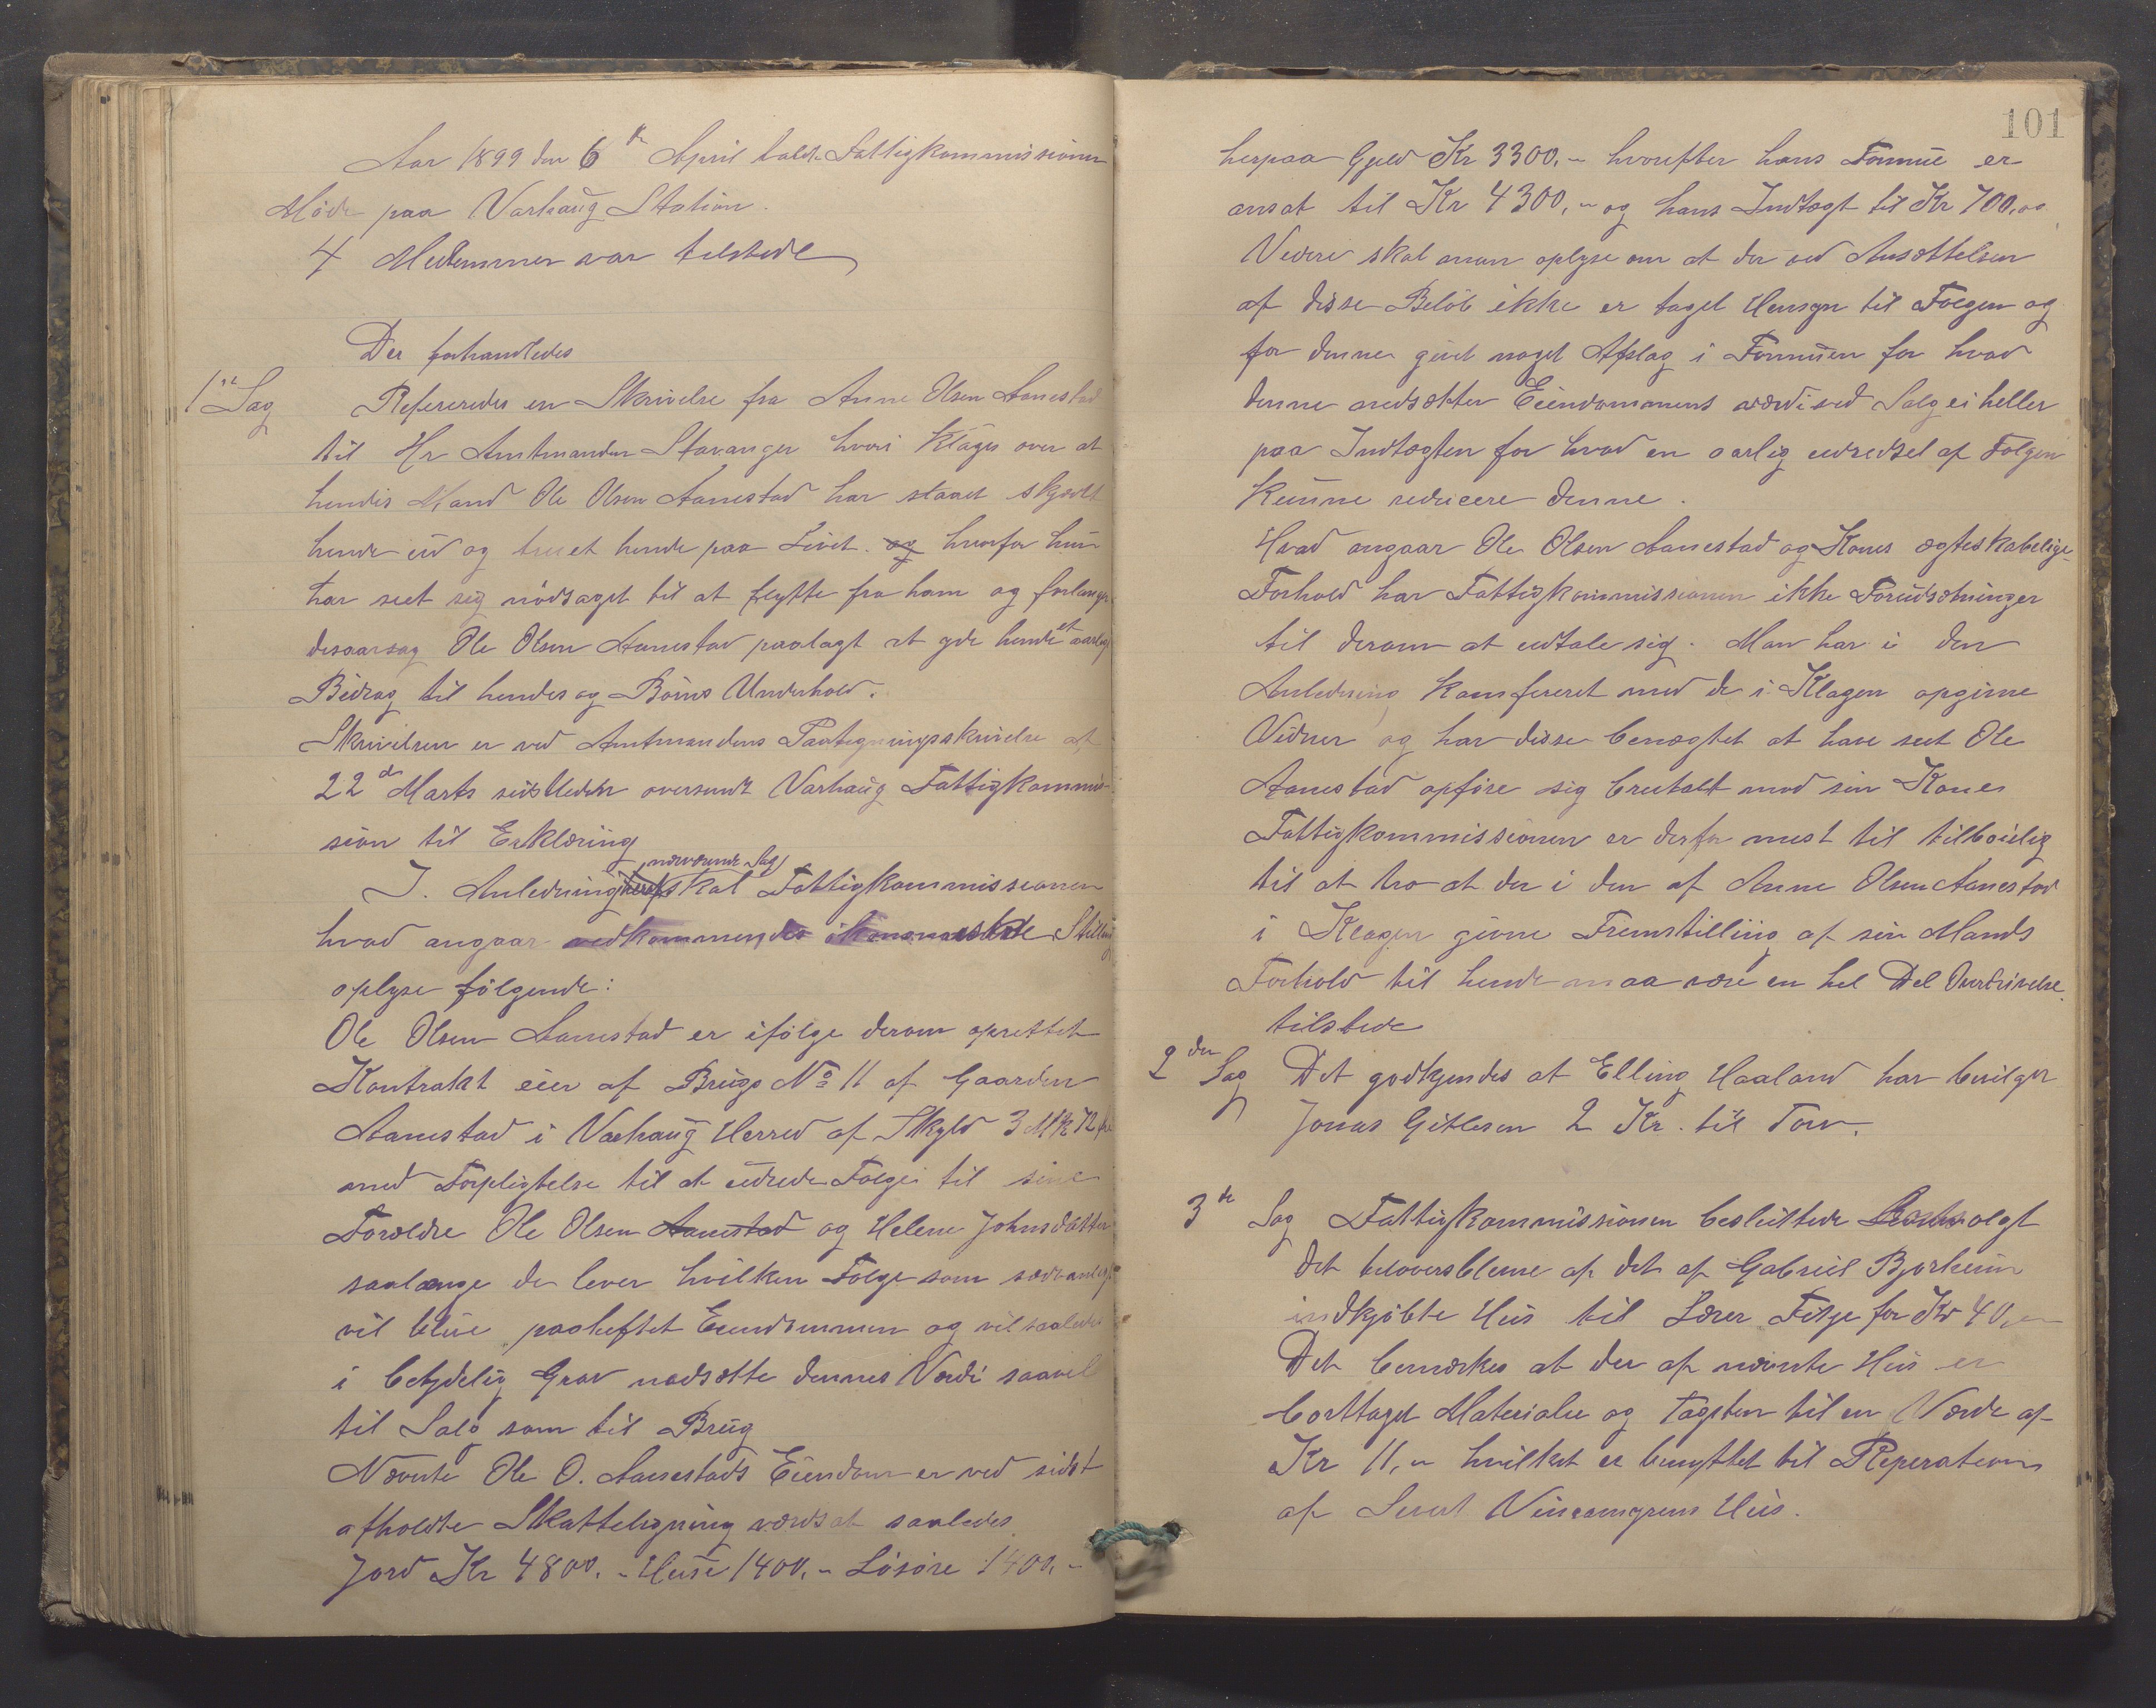 Aar 1899 den 6te April holdt Fattigkommissionen
Møde paa Varhaug Station.
4 Medlemmer var tilstede
Der forhandledes
1ste Sag Refereredes en Skrivelse fra Anne Olsen Aanestad
til Hr Amtmanden Stavanger hvori klages over at
hendes Mand Ole Olsen Aanestad har slaaet skjældt
hende ud og truet hende paa Livet. og hvorfor hun
har seet sig nødsaget til at flytte fra ham og forlanger
desaarsag Ole Olsen Aanestad paalagt at yde hende et aarligt
Bidrag til hendes og Børns Underhold.
Skrivelsen er ved Amtmandens Paategningsskrivelse af
22de Marts sidstleden oversendt Varhaug Fattigkommis-
sion til Erklæring
I. Anledning nærværende Sag skal Fattigkommissionen
hvad angaar vedkommendes økonomiske Stilling
oplyse følgende:
Ole Olsen Aanestad er ifølge derom oprettet
Kontrakt eier af Brugs No 11 af Gaarden
Aanestad i Varhaug Herred af Skyld 3 Mk 72 øre
med Forpligtelse til at udrede Følge til sine
Forældre Ole Olsen Aanestad og Helene Johnsdatter
saalænge de lever hvilken Følge som sædvanligt
vil blive paaheftet Eiendommen og vil saaledes
i betydelig Grav nedsætte dennes Værdi saavel
til Salg som til Brug
Nævnte Ole O. Aanestads Eiendom er ved sidst
afholdte Skatteligning værdsat saaledes
Jord Kr 4800. " Huse 1400. " Løsøre 1400. "
101
herpaa Gjeld Kr 3300, " hvorefter hans Formue er
ansat til Kr 4300, " og hans Indtægt til Kr 700, og
Videre skal man oplyse om at der ved Ansættelsen
af disse Beløb ikke er taget Hensyn til Følgen og
for denne givet noget Afslag i Formuen for hvad
denne nedsætter Eiendommens værdi ved Salg ei heller
paa Indtægten for hvad en aarlig udredsel af Følgen
kunne reducere denne.
Hvad angaar Ole Olsen Aanestad og Kones ægteskabelige
Forhold har Fattigkommissionen ikke Forudsætninger
til derom at udtale sig. Man har i den
Anledning konfereret med de i Klagen opgivne
Vidner og har disse benægtet at have seet Ole
Aanestad opføre sig brutalt mod sin Kone
Fattigkommissionen er derfor mest til tilbøielig
til at tro at der i den af Anne Olsen Aanestad
i Klagen givne Fremstilling af sin Mands
Forhold til hende maa være en hel Del Overdrivelse
tilstede
2den Sag Det godkjendes at Elling Haaland har bevilget
Jonas Gitlesen 2 Kr. til Torv.
3de Sag Fattigkommissionen besluttede solgt
det tiloversblevne af det af Gabriel Bjorheim
indkjøbte Hus til Lærer Fitje for Kr 40, "
Det bemærkes at der af nævnte Hus er
borttaget Materialer og Tagsten til en Værdi af
Kr 11, " hvilket er benyttet til Reperation
af Sivert Vincamyrens Hus.